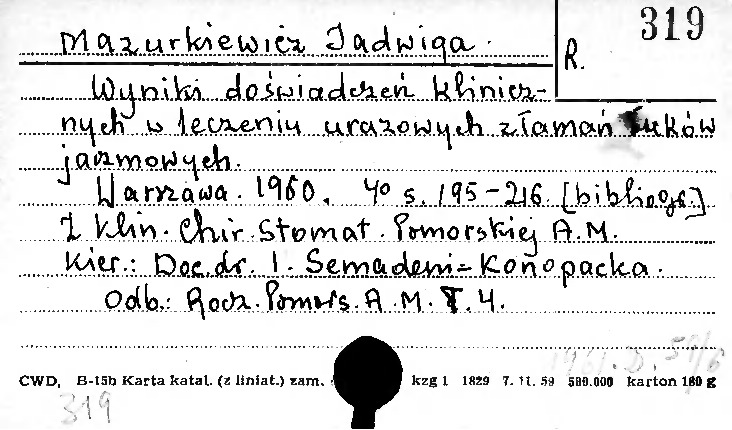 319
Mazurkiewicz Jadwiga.
R.
Wyniki doświadczeń klinicz-
nych w leczeniu urazowych złamań łuków
jarzmowych.
Warszawa. 1960. 4° s. 195-216 [bibliogr.]
Z Klin. Chir. Stomat. Pomorskiej A.M.
Kier.: Doc. dr. I. Semadeni-Konopacka.
Odb.: Rocz. Pomors. A.M. T. 4.
1961. D. 59/6
CWD, B-15b Karta katal. (z liniat.) zam. kzg 1 1829 7. 11. 59 500.000 karton 160 g
319